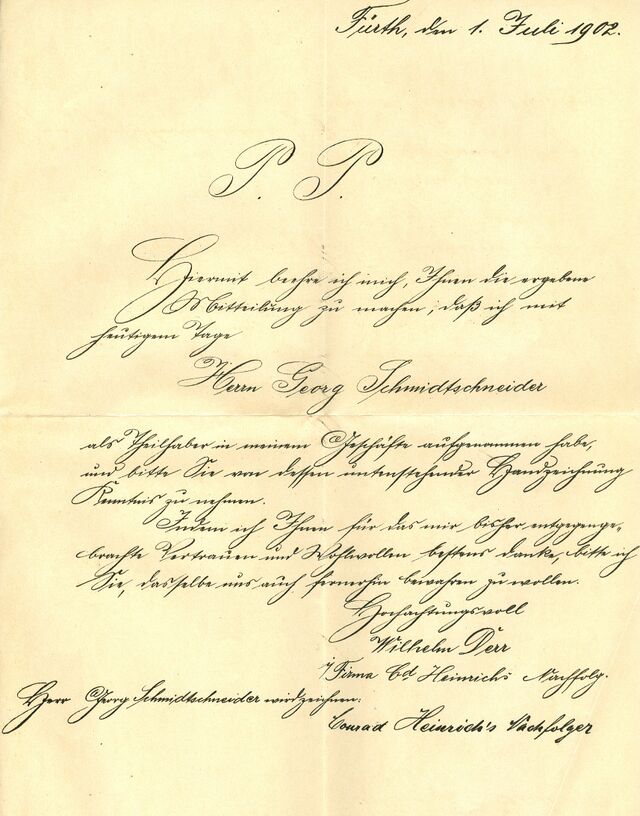 Fürth, den 1. Juli 1902.
P. P.
Hiermit beehre ich mich, Ihnen die ergebene
Mitteilung zu machen, daß ich mit
heutigem Tage
Herrn Georg Schmidtschneider
als Theilhaber in meinem Geschäfte aufgenommen habe,
und bitte Sie von dessen untenstehender Handzeichnung
Kenntnis zu nehmen.
Indem ich Ihnen für das mir bisher entgegenge-
brachte Vertrauen und Wohlwollen bestens danke, bitte ich
Sie, dasselbe uns auch fernerhin bewahren zu wollen.
Hochachtungsvoll
Wilhelm Derr
i/Firma Cd Heinrichs Nachfolg.
Herr Georg Schmidtschneider wird zeichnen:
Conrad Heinrich's Nachfolger